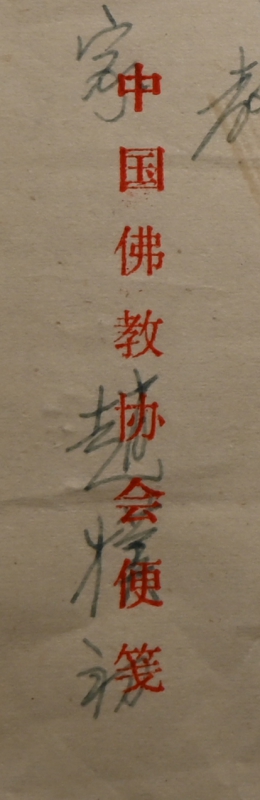 中国佛教协会便笺
赵朴初